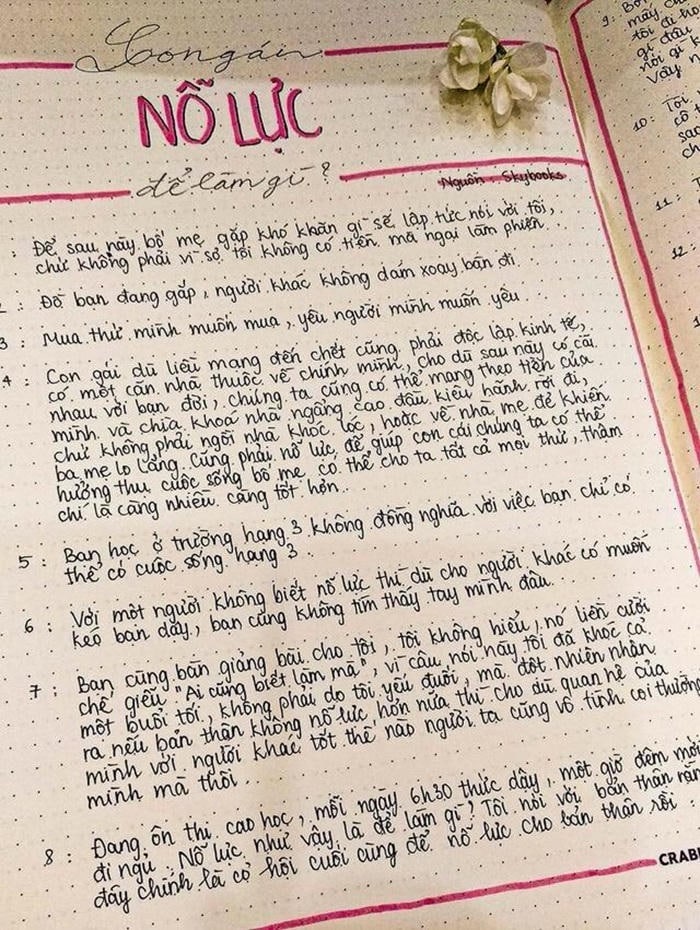 Con gái
NỖ LỰC
để làm gì?
Nguồn: Skybooks
: Để sau này bố mẹ gặp khó khăn gì sẽ lập tức nói với tôi,
chứ không phải vì sợ tôi không có tiền mà ngại làm phiền
: Đồ bạn đang gắp, người khác không dám xoay bàn đi
3 : Mua thứ mình muốn mua, yêu người mình muốn yêu
4 : Con gái dù liều mạng đến chết cũng phải độc lập kinh tế,
có một căn nhà thuộc về chính mình, cho dù sau này có cãi
nhau với bạn đời, chúng ta cũng có thể mang theo tiền của
mình và chìa khoá nhà ngẩng cao đầu kiêu hãnh rời đi,
chứ không phải ngồi nhà khóc lóc, hoặc về nhà mẹ để khiến
ba mẹ lo lắng. Cũng phải nỗ lực để giúp con cái chúng ta có thể
hưởng thụ cuộc sống bố mẹ có thể cho ta tất cả mọi thứ, thậm
chí là càng nhiều càng tốt hơn.
5 : Bạn học ở trường hạng 3 không đồng nghĩa với việc bạn chỉ có
thể có cuộc sống hạng 3.
6 : Với một người không biết nỗ lực thì dù cho người khác có muốn
kéo bạn dậy, bạn cũng không tìm thấy tay mình đâu.
7 : Bạn cùng bàn giảng bài cho tôi, tôi không hiểu, nó liền cười
chế giễu "Ai cũng biết làm mà", vì câu nói này tôi đã khóc cả
một buổi tối, không phải do tôi yếu đuối, mà đột nhiên nhận
ra nếu bản thân không nỗ lực hơn nữa thì cho dù quan hệ của
mình với người khác tốt thế nào người ta cũng vô tình coi thường
mình mà thôi.
8 : Đang ôn thi cao học, mỗi ngày 6h30 thức dậy, một giờ đêm mới
đi ngủ. Nỗ lực như vậy là để làm gì? Tôi nói với bản thân rằng
đây chính là cơ hội cuối cùng để nỗ lực cho bản thân rồi
9 :
mấy
tôi đi
gì đâu
nói gì
Vậy
10 : Tôi
cô
11 :
12 :